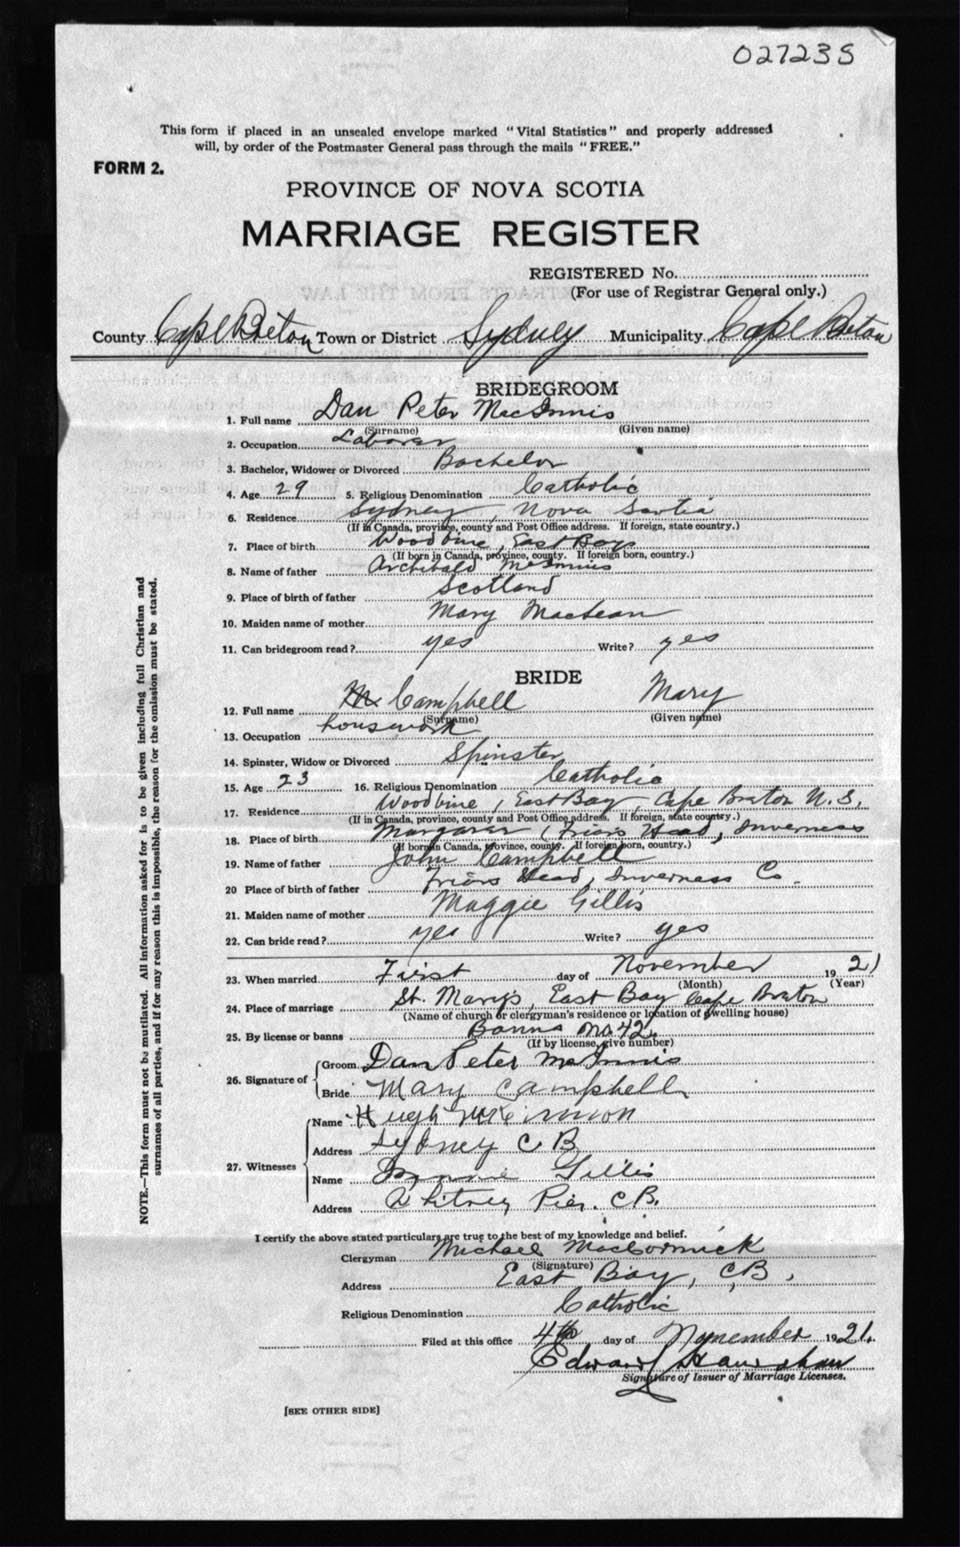 027235
This form if placed in an unsealed envelope marked "Vital Statistics" and properly addressed
will, by order of the Postmaster General pass through the mails "FREE."
FORM 2.
PROVINCE OF NOVA SCOTIA
MARRIAGE REGISTER
REGISTERED No.
(For use of Registrar General only.)
County Cape Breton Town or District Sydney Municipality Cape Breton
BRIDEGROOM
1. Full name Dan Peter MacInnis
(Surname) (Given name)
2. Occupation Laborer
3. Bachelor, Widower or Divorced Bachelor
4. Age 29 5. Religious Denomination Catholic
6. Residence Sydney, Nova Scotia
(If in Canada, province, county and Post Office address. If foreign, state country.)
7. Place of birth Woodbine, East Bay
(If born in Canada, province, county. If foreign born, country.)
8. Name of father Archibald McInnis
9. Place of birth of father Scotland
10. Maiden name of mother Mary MacLean
11. Can bridegroom read? yes Write? yes
BRIDE
12. Full name Campbell Mary
(Surname) (Given name)
13. Occupation housework
14. Spinster, Widow or Divorced Spinster
15. Age 23 16. Religious Denomination Catholic
17. Residence Woodbine, East Bay, Cape Breton N.S.
(If in Canada, province, county and Post Office address. If foreign, state country.)
18. Place of birth Margaree (Friars Head, Inverness
(If born in Canada, province, county. If foreign born, country.)
19. Name of father John Campbell
20 Place of birth of father Friars Head, Inverness Co.
21. Maiden name of mother Maggie Gillis
22. Can bride read? yes Write? yes
23. When married First day of November 1921
(Month) (Year)
24. Place of marriage St. Mary's, East Bay Cape Breton
(Name of church or clergyman's residence or location of dwelling house)
25. By license or banns Banns No 42
(If by license, give number)
26. Signature of Groom Dan Peter McInnis
Bride Mary Campbell
27. Witnesses Name Hugh McKinnon
Address Sydney C B
Name Gillis
Address Whitney Pier. C B.
I certify the above stated particulars are true to the best of my knowledge and belief.
Clergyman Michael MacCormick
(Signature)
Address East Bay, C B,
Religious Denomination Catholic
Filed at this office 4th day of November 1921.
Edward
Signature of Issuer of Marriage Licenses.
[SEE OTHER SIDE]
NOTE.—This form must not be mutilated. All information asked for is to be given including full Christian and
surnames of all parties, and if for any reason this is impossible, the reason for the omission must be stated.